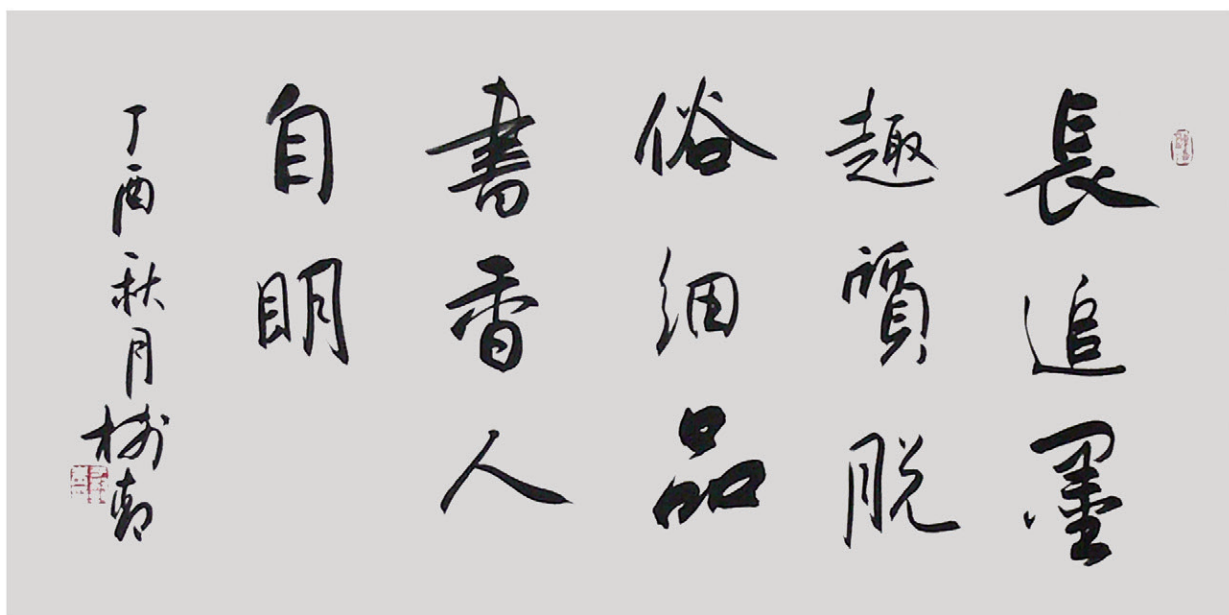 長追墨
趣質脱
俗細品
書香人
自明
丁酉秋月樹郁